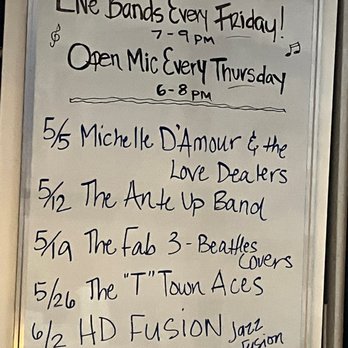 Live Bands Every Friday!
7-9 PM
Open Mic Every Thursday
6-8 PM
5/5 Michelle D'Amour & the
Love Dealers
5/12 The Ante Up Band
5/19 The Fab 3 - Beatles
Covers
5/26 The "T" Town Aces
6/2 HD FUSION Jazz
Fusion